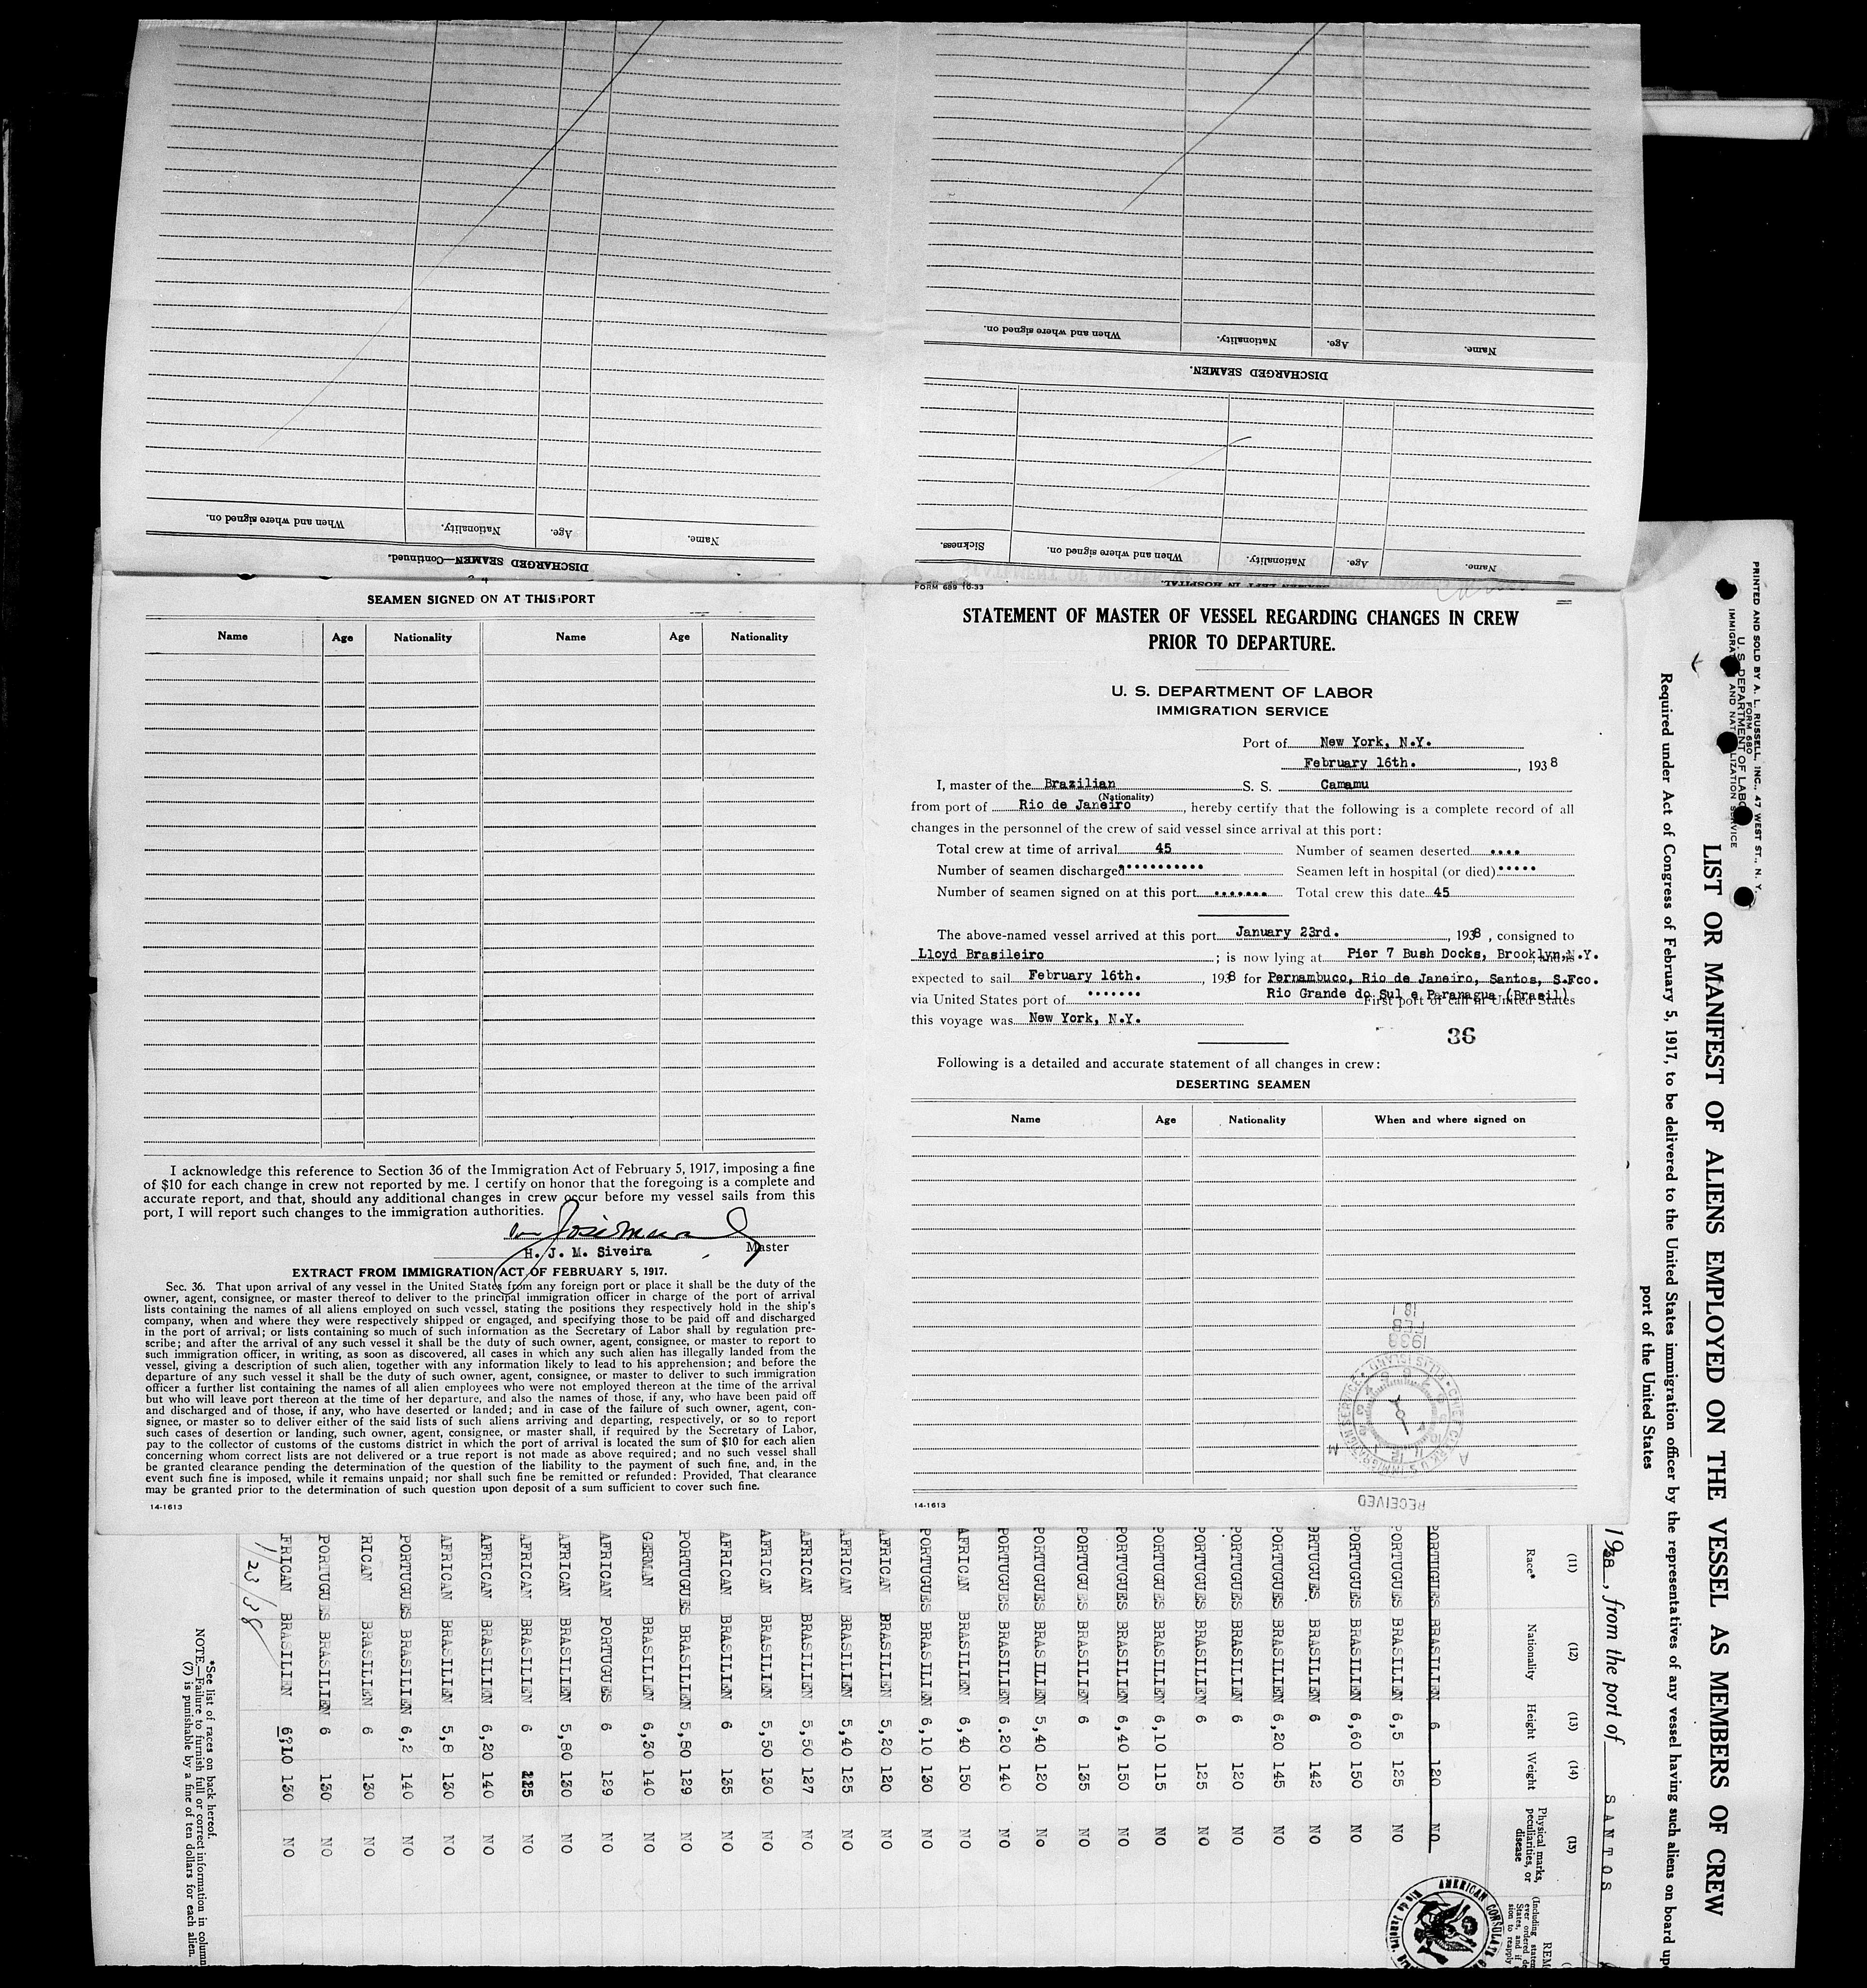 When and where signed on.
Nationality.
Age.
Name.
DISCHARGED SEAMEN—Continued.
When and where signed on.
Nationality.
Age.
Name.
DISCHARGED SEAMEN.
Sickness.
When and where signed on.
Nationality.
Age.
Name.
SEAMEN LEFT IN HOSPITAL.
SEAMEN SIGNED ON AT THIS PORT
Name Age Nationality Name Age Nationality
I acknowledge this reference to Section 36 of the Immigration Act of February 5, 1917, imposing a fine
of $10 for each change in crew not reported by me. I certify on honor that the foregoing is a complete and
accurate report, and that, should any additional changes in crew occur before my vessel sails from this
port, I will report such changes to the immigration authorities.
H. J. M. Siveira Master
EXTRACT FROM IMMIGRATION ACT OF FEBRUARY 5, 1917.
Sec. 36. That upon arrival of any vessel in the United States from any foreign port or place it shall be the duty of the
owner, agent, consignee, or master thereof to deliver to the principal immigration officer in charge of the port of arrival
lists containing the names of all aliens employed on such vessel, stating the positions they respectively hold in the ship's
company, when and where they were respectively shipped or engaged, and specifying those to be paid off and discharged
in the port of arrival; or lists containing so much of such information as the Secretary of Labor shall by regulation pre-
scribe; and after the arrival of any such vessel it shall be the duty of such owner, agent, consignee, or master to report to
such immigration officer, in writing, as soon as discovered, all cases in which any such alien has illegally landed from the
vessel, giving a description of such alien, together with any information likely to lead to his apprehension; and before the
departure of any such vessel it shall be the duty of such owner, agent, consignee, or master to deliver to such immigration
officer a further list containing the names of all alien employees who were not employed thereon at the time of the arrival
but who will leave port thereon at the time of her departure, and also the names of those, if any, who have been paid off
and discharged and of those, if any, who have deserted or landed; and in case of the failure of such owner, agent, con-
signee, or master so to deliver either of the said lists of such aliens arriving and departing, respectively, or so to report
such cases of desertion or landing, such owner, agent, consignee, or master shall, if required by the Secretary of Labor,
pay to the collector of customs of the customs district in which the port of arrival is located the sum of $10 for each alien
concerning whom correct lists are not delivered or a true report is not made as above required; and no such vessel shall
be granted clearance pending the determination of the question of the liability to the payment of such fine, and, in the
event such fine is imposed, while it remains unpaid; nor shall such fine be remitted or refunded: Provided, That clearance
may be granted prior to the determination of such question upon deposit of a sum sufficient to cover such fine.
14-1613
FORM 689 10-33
STATEMENT OF MASTER OF VESSEL REGARDING CHANGES IN CREW
PRIOR TO DEPARTURE.
U. S. DEPARTMENT OF LABOR
IMMIGRATION SERVICE
Port of New York, N.Y.
February 16th. , 1938
I, master of the Brazilian S. S. Camamu
(Nationality)
from port of Rio de Janeiro , hereby certify that the following is a complete record of all
changes in the personnel of the crew of said vessel since arrival at this port:
Total crew at time of arrival 45 Number of seamen deserted ....
Number of seamen discharged Seamen left in hospital (or died)
Number of seamen signed on at this port Total crew this date 45
The above-named vessel arrived at this port January 23rd. , 1938 , consigned to
Lloyd Brasileiro ; is now lying at Pier 7 Bush Docks, Brooklyn,N.Y.
expected to sail February 16th. , 1938 for Pernambuco, Rio de Janeiro, Santos, S.Fco.
Rio Grande do Sul e Paranagua (Brasil)
via United States port of ....... First port of call in United States
this voyage was New York, N.Y.
36
Following is a detailed and accurate statement of all changes in crew:
DESERTING SEAMEN
Name Age Nationality When and where signed on
18
FEB
1938
RECEIVED
14-1613
PRINTED AND SOLD BY A. L. RUSSELL, INC., 47 WEST ST., N. Y.
FORM 680
U. S. DEPARTMENT OF LABOR
IMMIGRATION AND NATURALIZATION SERVICE
LIST OR MANIFEST OF ALIENS EMPLOYED ON THE VESSEL AS MEMBERS OF CREW
Required under Act of Congress of February 5, 1917, to be delivered to the United States immigration officer by the representatives of any vessel having such aliens on board up
port of the United States
1938, from the port of SANTOS
(11) (12) (13) (14) (15)
Race* Nationality Height Weight Physical marks, peculiarities, or disease
PORTUGUES BRASILIEN 6 120 NO
PORTUGUES BRASILIEN 6,5 125 NO
PORTUGUES BRASILIEN 6,60 150 NO
ORTUGUES BRASILIEN 6 142 NO
PORTUGUES BRASILIEN 6,20 145 NO
PORTUGUES BRASILIEN 6 120 NO
PORTUGUES BRASILIEN 6 125 NO
PORTUGUES BRASILIEN 6,10 115 NO
PORTUGUES BRASILIEN 6,40 150 NO
PORTUGUES BRASILIEN 6 135 NO
PORTUGUES BRASILIEN 5,40 120 No
PORTUGUES BRASILIEN 6.20 140 NO
AFRICAN BRASILIEN 6,40 150 NO
PORTUGUES BRASILIEN 6,10 130 NO
AFRICAN BRASILIEN 5,20 120 NO
AFRICAN BRASILIEN 5,40 125 NO
AFRICAN BRASILIEN 5,50 127 NO
AFRICAN BRASILIEN 5,50 130 NO
AFRICAN BRASILIEN 6 135 NO
PORTUGUES BRASILIEN 5,80 129 NO
GERMAN BRASILIEN 6,30 140 NO
AFRICAN PORTUGUES 6 129 NO
AFRICAN BRASILIEN 5,80 130 NO
AFRICAN BRASILIEN 6 125 NO
AFRICAN BRASILIEN 6,20 140 NO
AFRICAN BRASILIEN 5,8 130 NO
PORTUGUES BRASILIEN 6,2 140 NO
RICAN BRASILIEN 6 130 NO
PORTUGUES BRASILIEN 6 130 NO
FRICAN BRASILIEN 6,10 130 NO
1/23/38
*See list of races on back hereof.
NOTE.—Failure to furnish full or correct information in column
(7) is punishable by a fine of ten dollars for each alien.
AMERICAN CONSULATE